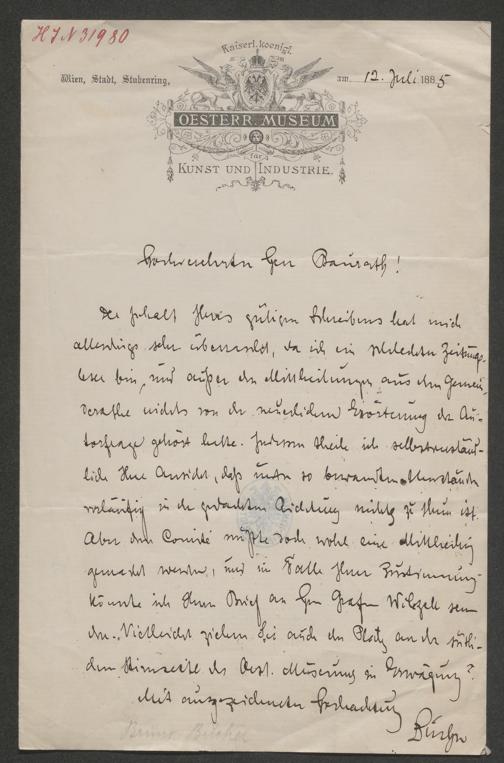 HIN 31980
Kaiserl. koenigl.
Wien, Stadt, Stubenring,
am 12. Juli 1885
OESTERR. MUSEUM
für
KUNST UND INDUSTRIE.
Hochverehrter Herr Baurath!
Der Inhalt Ihres gütigen Schreibens hat mich
allerdings sehr überrascht, da ich ein schlechter Zeitungs-
leser bin, und außer den Mittheilungen aus dem Gemein-
derathe nichts von der neuerlichen Erörterung der Au-
torfrage gehört hatte. Indessen theile ich selbstverständ-
lich Ihre Ansicht, daß unter so bewandten Umständen
vorläufig in der gedachten Richtung nichts zu thun ist.
Aber dem Comité müßte doch wohl eine Mittheilung
gemacht werden, und im Falle Ihrer Zustimmung
könnte ich Ihren Brief an Herrn Grafen Wilczek sen-
den. Vielleicht ziehen Sie auch den Platz an der südli-
chen Stirnseite des Oest. Museums in Erwägung?
Mit ausgezeichneter Hochachtung
Bucher
Bruno Bucher